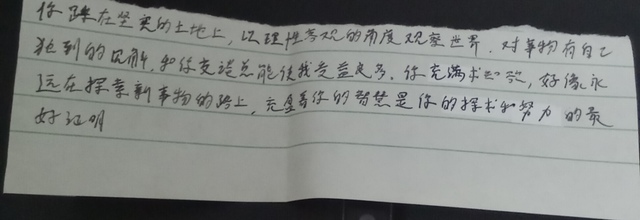 你踩在坚实的土地上，以理性客观的角度观察世界，对事物有自己
独到的见解，和你交谈总能使我受益良多，你充满求知欲，好像永
远在探索新事物的路上，充盈着你的智慧是你的探求和努力的最
好证明